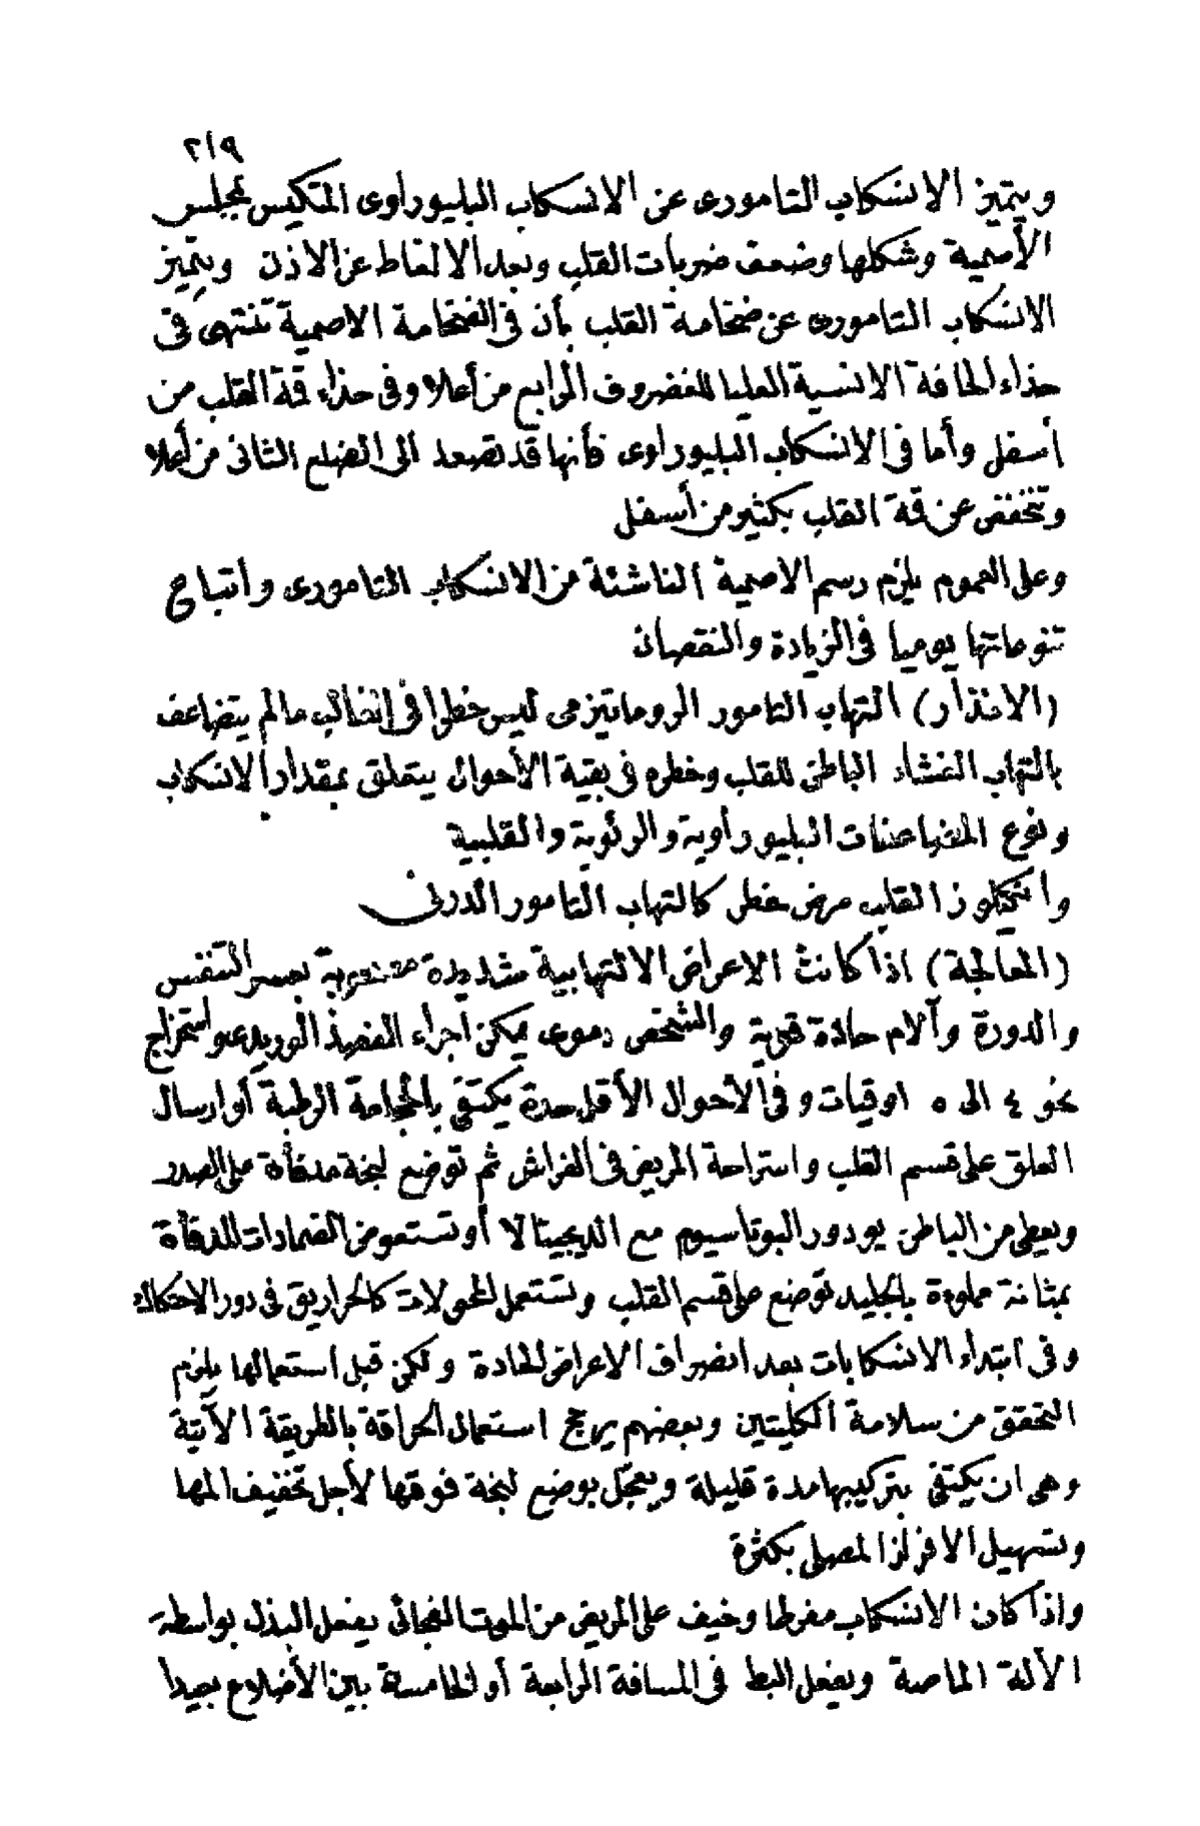 ٢١٩
ويتميز الانسكاب التامورى عن الانسكاب البليوراوى المتكيس بمجلس
الأصمية وشكلها وضعف ضربات القلب وبعد الالغاط عن الاذن ويتميز
الانسكاب التامورى عن ضخامة القلب بأن فى الضخامة الاصمية تنتهى فى
حذاء الحافة الانسية العليا للغضروف الرابع من أعلا وفى حذاء قمة القلب من
أسفل وأما فى الانسكاب البليوراوى فأنها قد تصعد الى الضلع الثانى من أعلا
وتنخفض عن قمة القلب بكثير من أسفل
وعلى العموم يلزم رسم الاصمية الناشئة من الانسكاب التامورى واتباع
تنوعاتها يوميا فى الزيادة والنقصان
(الانذار) التهاب التامور الروماتيزمى ليس خطرا فى الغالب مالم يتضاعف
بالتهاب الغشاء الباطن للقلب وخطره فى بقية الأحوال يتعلق بمقدار الانسكاب
ونوع المضاعفات البليوراوية والرئوية والقلبية
والقلب مرض خطر كالتهاب التامور الدرنى
(المعالجة) اذا كانت الاعراض الالتهابية شديدة مصحوبة بعسر التنفس
والدورة وآلام حادة قوية والشخص دموى يمكن اجراء الفصد الوريدى واستخراج
نحو ٤ الى ٥ اوقيات وفى الأحوال الأقل حدة يكتفى بالحجامة الرطبة أو ارسال
العلق على قسم القلب واستراحة المريض فى الفراش ثم توضع لبخة مدفأة على الصدر
ويعطى من الباطن يودور البوتاسيوم مع الديجيتالا أو تستعوض الضمادات المدفأة
بمثانة مملوءة بالجليد توضع على قسم القلب وتستعمل المحولات كالحراريق فى دور الاحتكاك
وفى ابتداء الانسكابات بعد انصراف الاعراض الحادة ولكن قبل استعمالها يلزم
التحقق من سلامة الكليتين وبعضهم يرجح استعمال الحراقة بالطريقة الآتية
وهى ان يكتفى بتركيبها مدة قليلة ويعجل بوضع لبخة فوقها لأجل تخفيف المها
وتسهيل الافراز المصلى بكثرة
واذا كان الانسكاب مفرطا وخيف على المريض من الموت الفجائى يفعل البذل بواسطة
الآلة الماصة ويفعل البط فى المسافة الرابعة أو الخامسة بين الأضلاع بعيدا